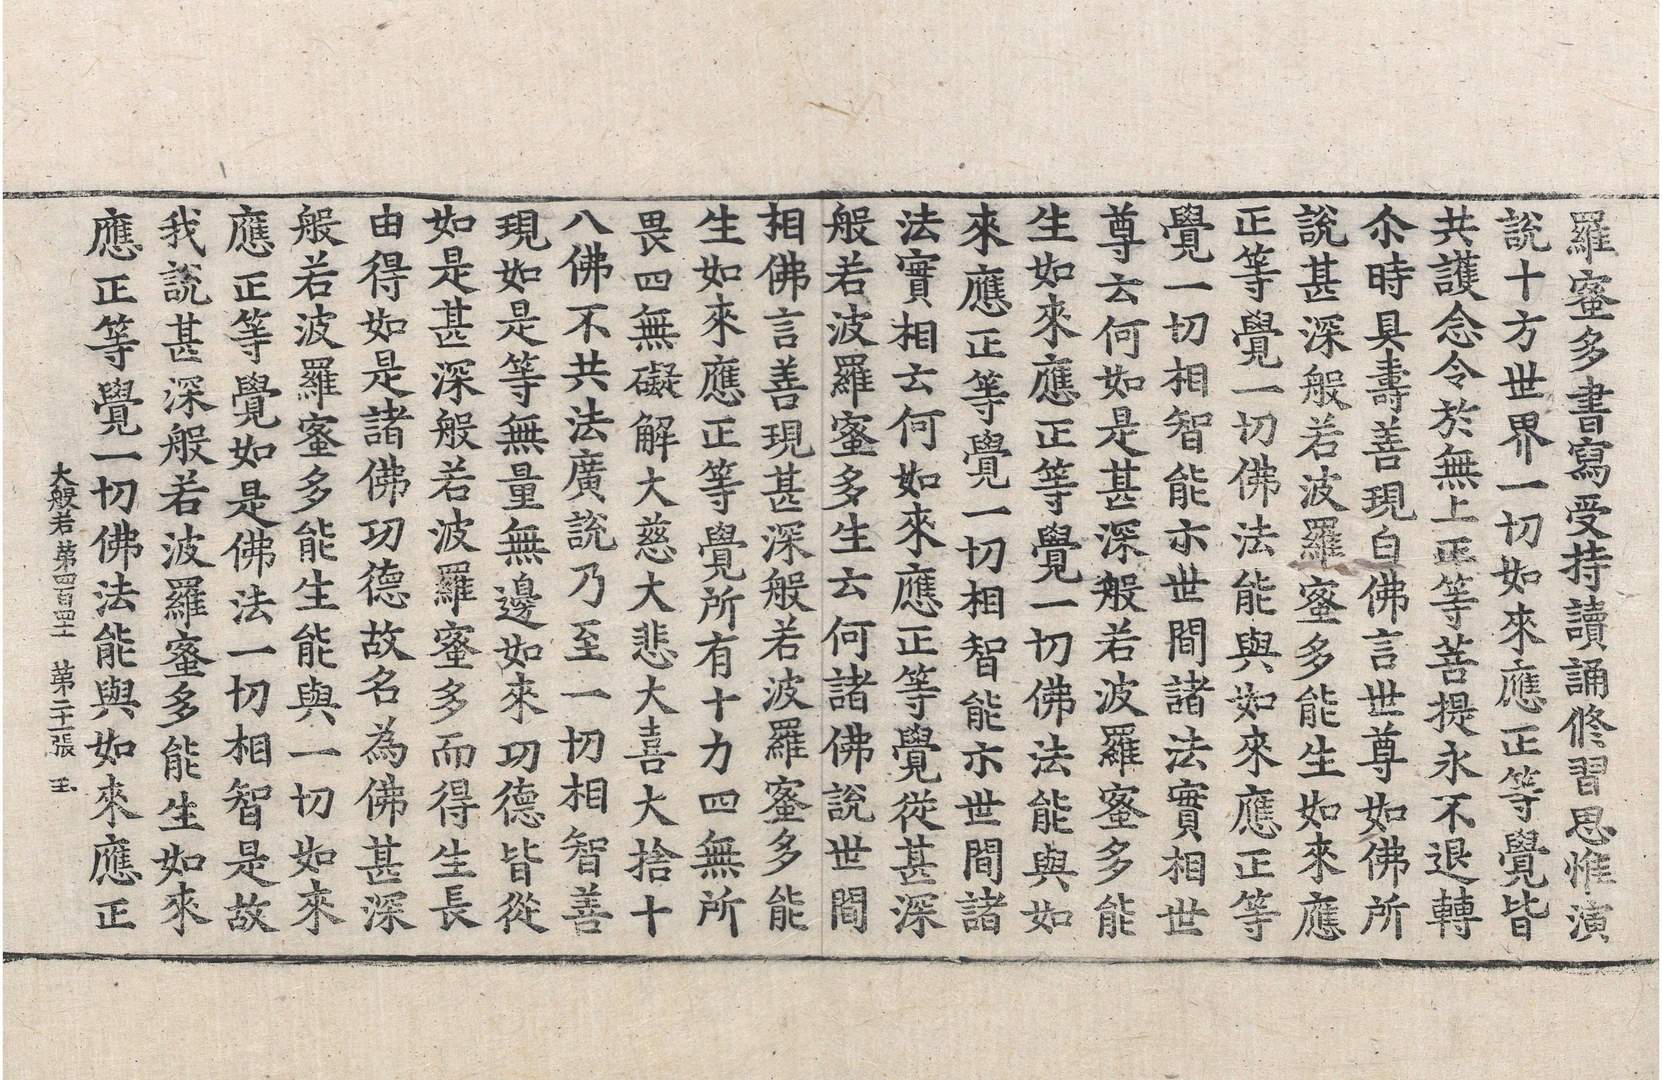 羅蜜多書寫受持讀誦修習思惟演
說十方世界一切如來應正等覺皆
共護念令於無上正等菩提永不退轉
尒時具壽善現白佛言世尊如佛所
說甚深般若波羅蜜多能生如來應
正等覺一切佛法能與如來應正等
覺一切相智能示世間諸法實相世
尊云何如是甚深般若波羅蜜多能
生如來應正等覺一切佛法能與如
來應正等覺一切相智能示世間諸
法實相云何如來應正等覺從甚深
般若波羅蜜多生云何諸佛說世間
相佛言善現甚深般若波羅蜜多能
生如來應正等覺所有十力四無所
畏四無礙解大慈大悲大喜大捨十
八佛不共法廣說乃至一切相智善
現如是等無量無邊如來功德皆從
如是甚深般若波羅蜜多而得生長
由得如是諸佛功德故名為佛甚深
般若波羅蜜多能生能與一切如來
應正等覺如是佛法一切相智是故
我說甚深般若波羅蜜多能生如來
應正等覺一切佛法能與如來應正
大般若第四百四十一 第二十一張